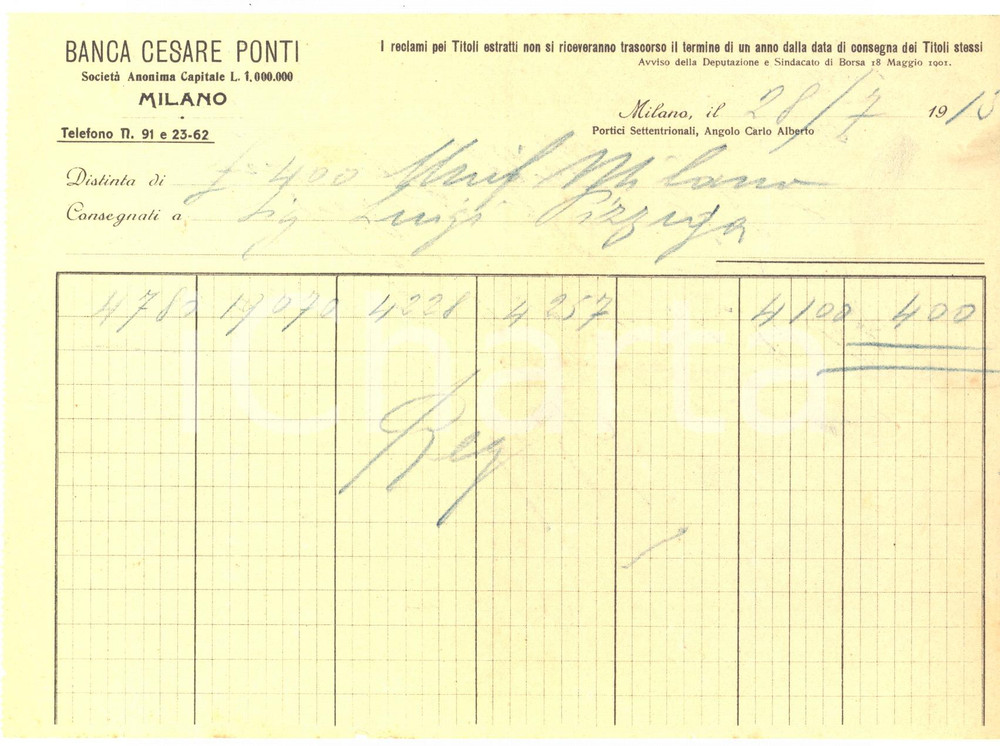 BANCA CESARE PONTI
Società Anonima Capitale L. 1,000.000
MILANO
Telefono N. 91 e 23-62
I reclami pei Titoli estratti non si riceveranno trascorso il termine di un anno dalla data di consegna dei Titoli stessi
Avviso della Deputazione e Sindacato di Borsa 18 Maggio 1901.
Milano, il 28/7 19
Portici Settentrionali, Angolo Carlo Alberto
Distinta di £ 400 Unif Milano
Consegnati a Sig Luigi
4780 19070 4228 4257 4100 400
iCharta